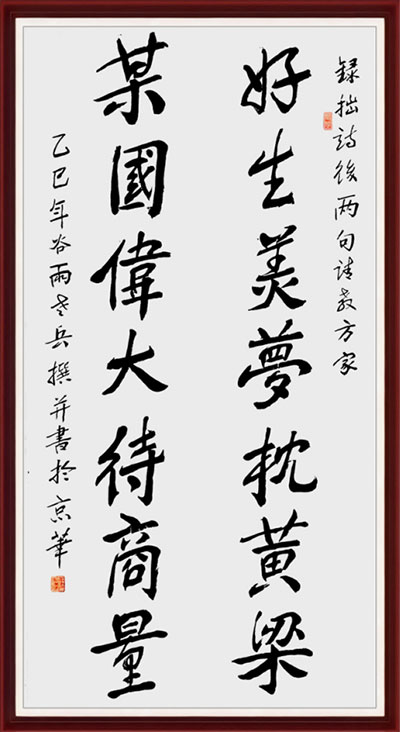 録拙詩後两句请教方家
好生羙夢枕黄梁
某國偉大待商量
乙巳年谷雨老兵撰并書於京華